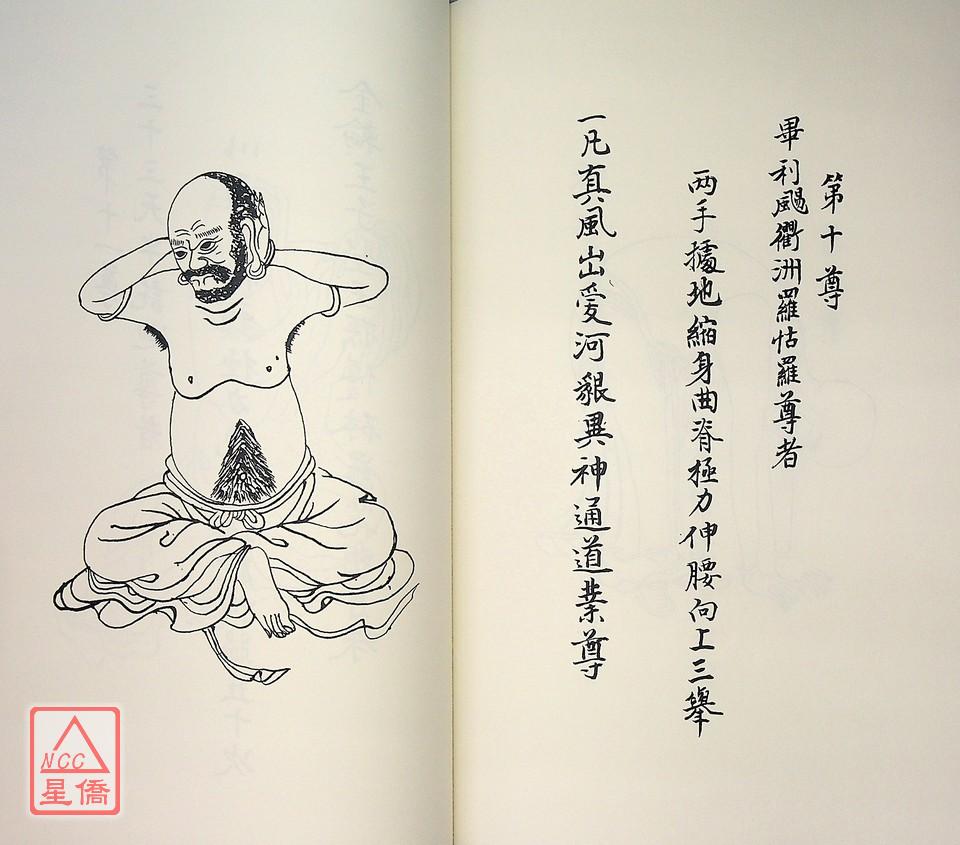 第十尊
畢利颺衢洲羅怙羅尊者
两手據地縮身曲脊極力伸腰向上三舉
一凡真風出愛河貇異神通道業尊
NCC
星僑